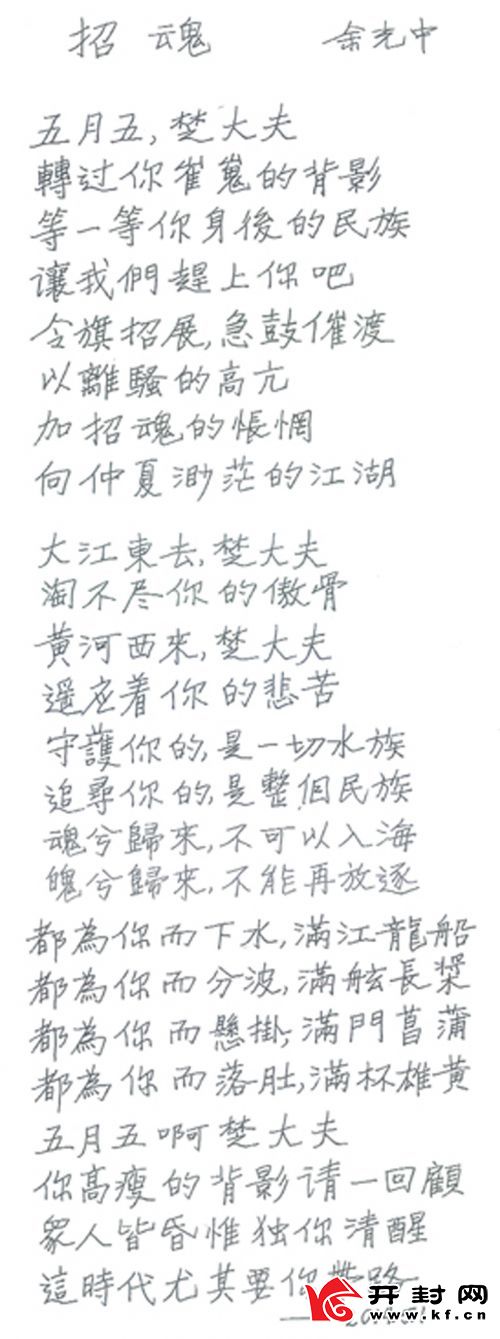 招魂 余光中
五月五，楚大夫
轉过你崔嵬的背影
等一等你身後的民族
讓我們趕上你吧
令旗招展，急鼓催渡
以離騷的高亢
加招魂的悵惘
向仲夏渺茫的江湖
大江東去，楚大夫
淘不尽你的傲骨
黄河西來，楚大夫
遥应着你的悲苦
守護你的，是一切水族
追尋你的，是整個民族
魂兮歸來，不可以入海
魄兮歸來，不能再放逐
都為你而下水，滿江龍船
都為你而分波，滿舷長槳
都為你而懸掛，滿門菖蒲
都為你而落肚，滿杯雄黄
五月五啊楚大夫
你高瘦的背影请一回顧
眾人皆昏惟独你清醒
這時代尤其要你帶路
开封网
www.kf.cn